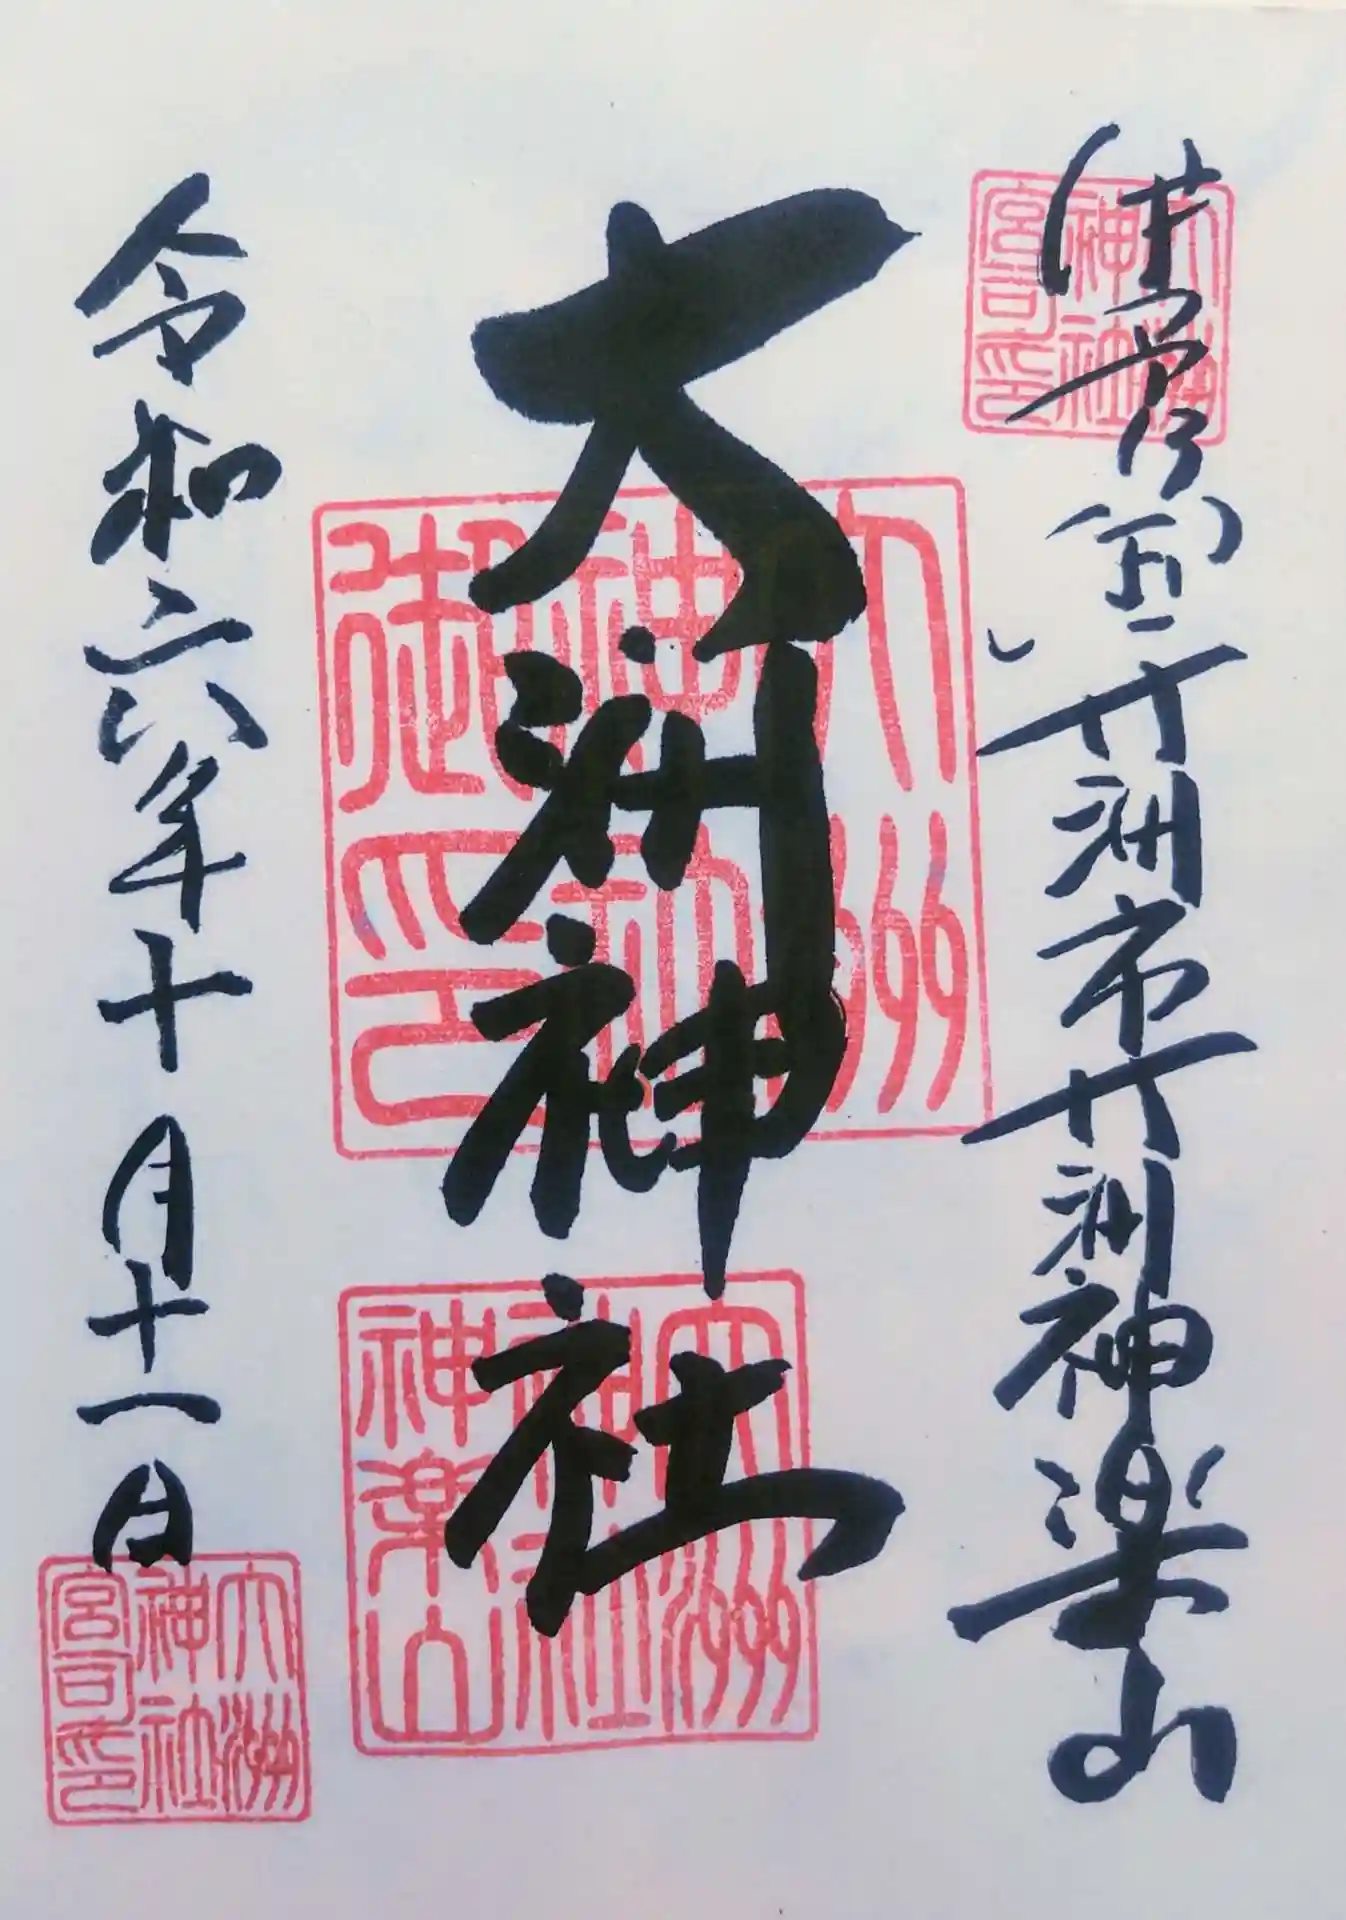 大洲市大洲神楽山
大洲
神社
宮司印
大洲神社
大洲
神社
御印
大洲
神社
神楽山
令和六年十月十一日
大洲
神社
宮司印